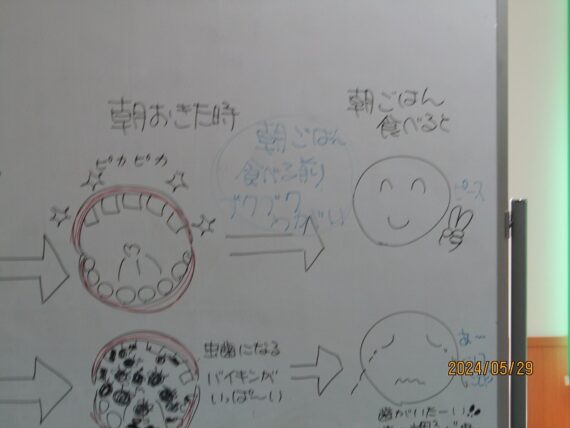 朝おきた時
ピカピカ
朝ごはん
食べる前
ブクブク
うがい
朝ごはん
食べると
ピース
虫歯になる
バイキンが
いっぱ〜い
あ〜
歯がいたーい!!
2024/05/29